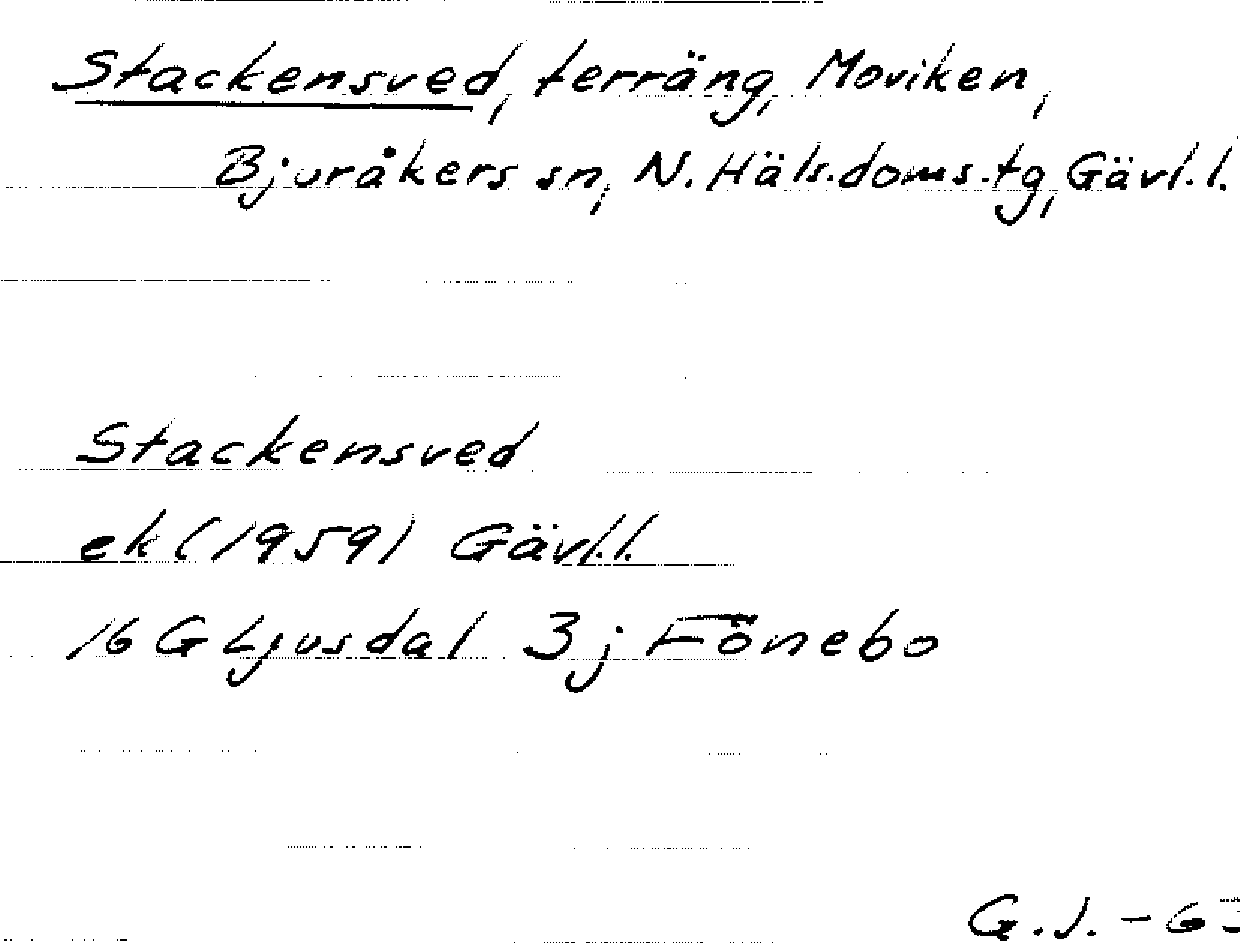 Stackensved, terräng, Moviken,
Bjuråkers sn, N. Häls.doms.tg, Gävl.l.
Stackensved
ek (1959) Gävl.l.
16 G Ljusdal 3j Fönebo
G.J. - 63